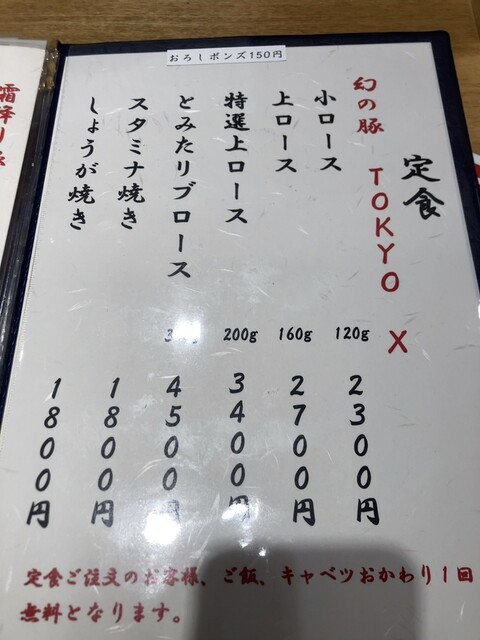 おろしポンズ150円
定食
幻の豚 TOKYO X
小ロース 120g 2300円
上ロース 160g 2700円
特選上ロース 200g 3400円
とみたリブロース 4500円
スタミナ焼き 1800円
しょうが焼き 1800円
定食ご注文のお客様、ご飯、キャベツおかわり1回
無料となります。
霜降り